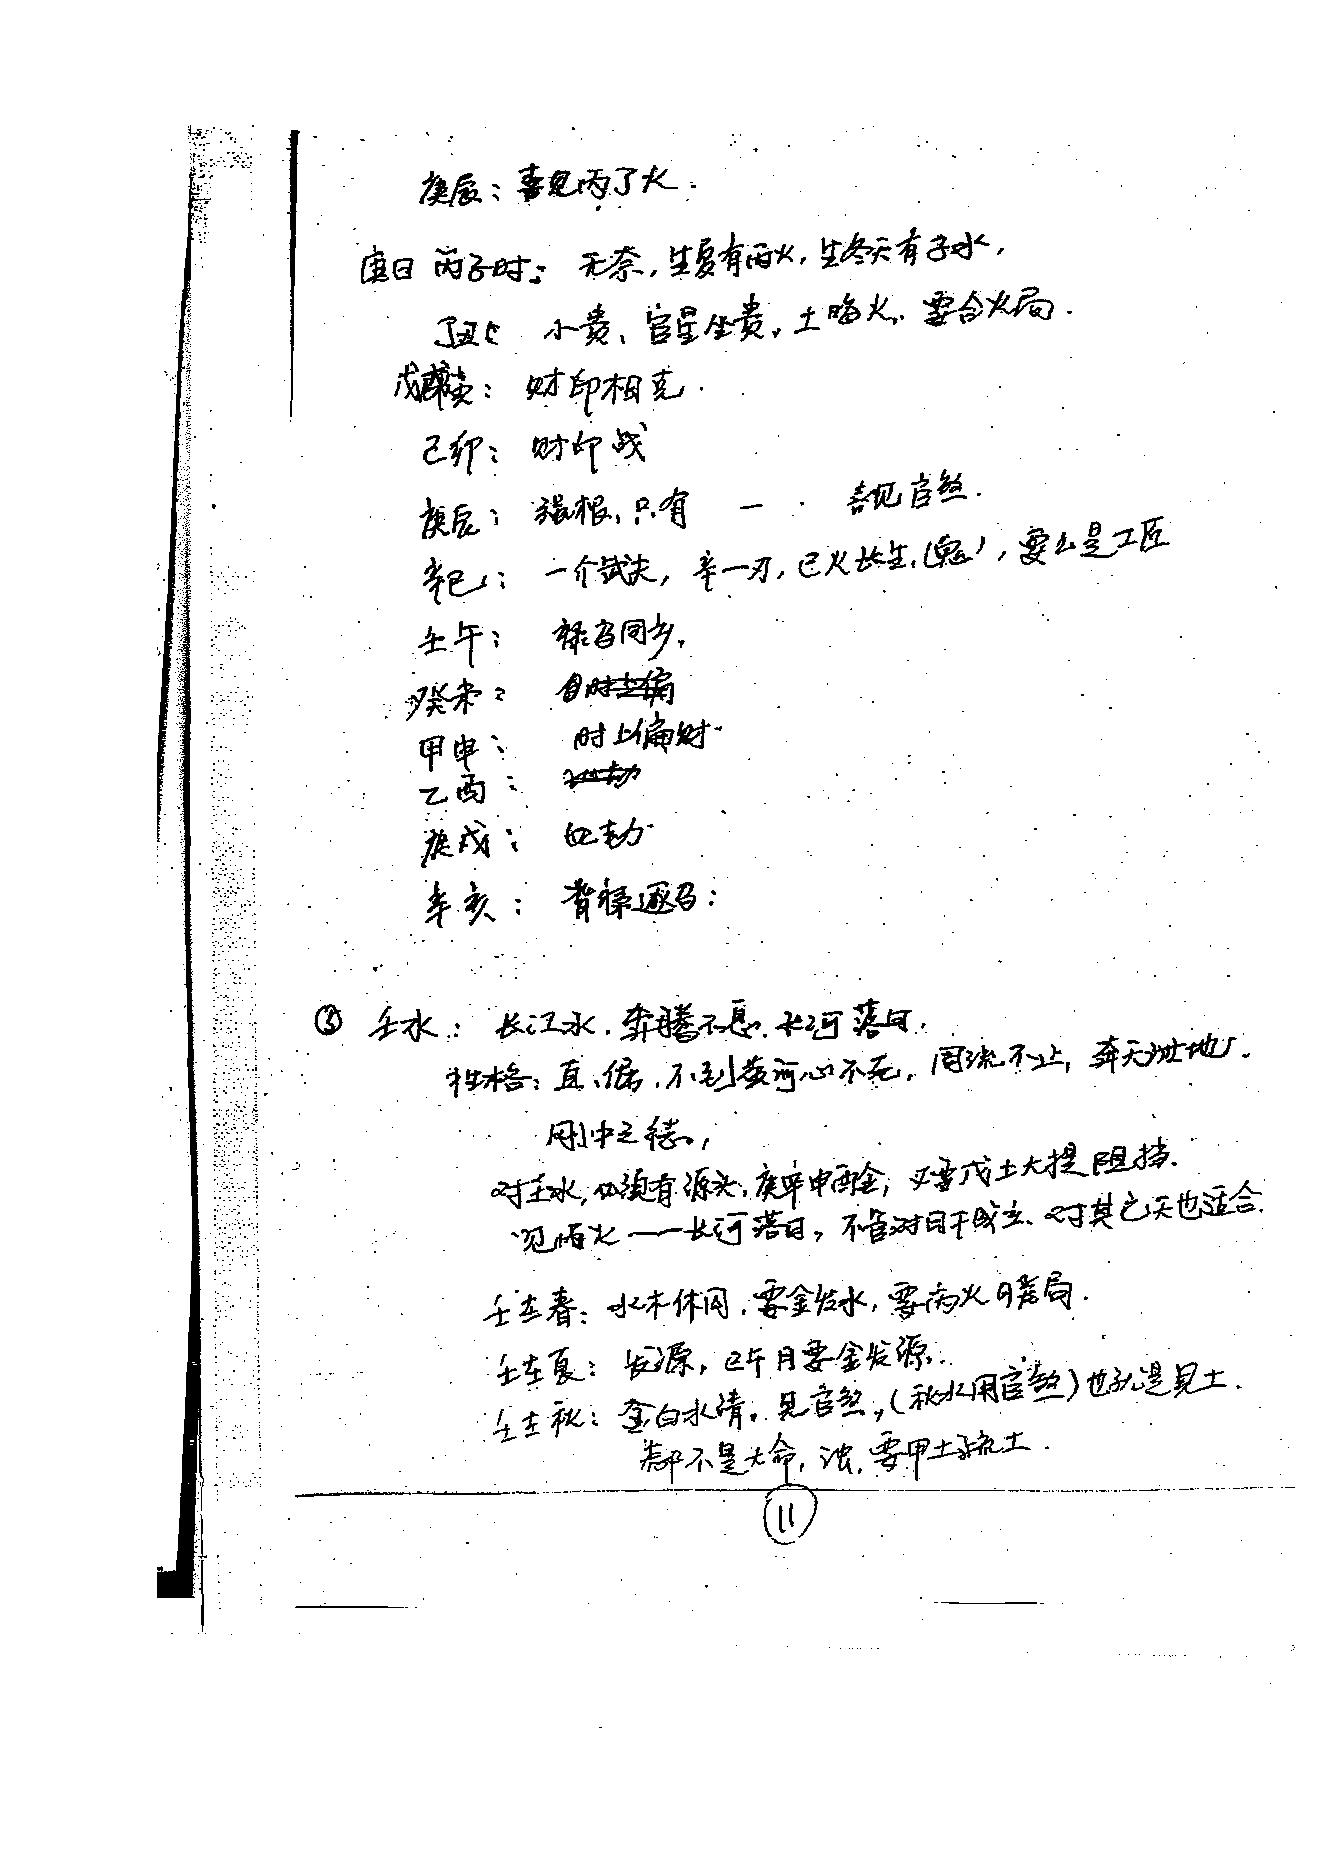 庚辰：喜见丙丁火.
庚日 丙子时：无奈，生夏有丙火，生冬天有子水，
丁丑：小贵、官星坐贵，土晦火，要合火局.
戊寅：财印相克.
己卯：财印战
庚辰：强根，只有 一 · 喜见官煞.
辛巳：一介武夫，辛一刃，巳火长生，(鬼)，要么是工匠
壬午：禄马同乡.
癸未：
甲申：时上偏财.
乙酉：
庚戌：比劫
辛亥：背禄逐马：
③ 壬水：长江水.奔腾不息.长河落日.
性格：直、偏.不到黄河心不死，周流不止，奔天泄地.
刚中之德，
对壬水，必须有源头，庚辛申酉金，又要戊土大提阻挡.
见丙火——长河落日，不管对日干成立、对其它天也适合.
壬在春：水木休囚.要金发水，要丙火暖局.
壬在夏：发源，巳午月要金发源.
壬在秋：金白水清，见官煞，(秋水用官煞)也就是见土.
都不是大命，浊，要甲土疏土.
11